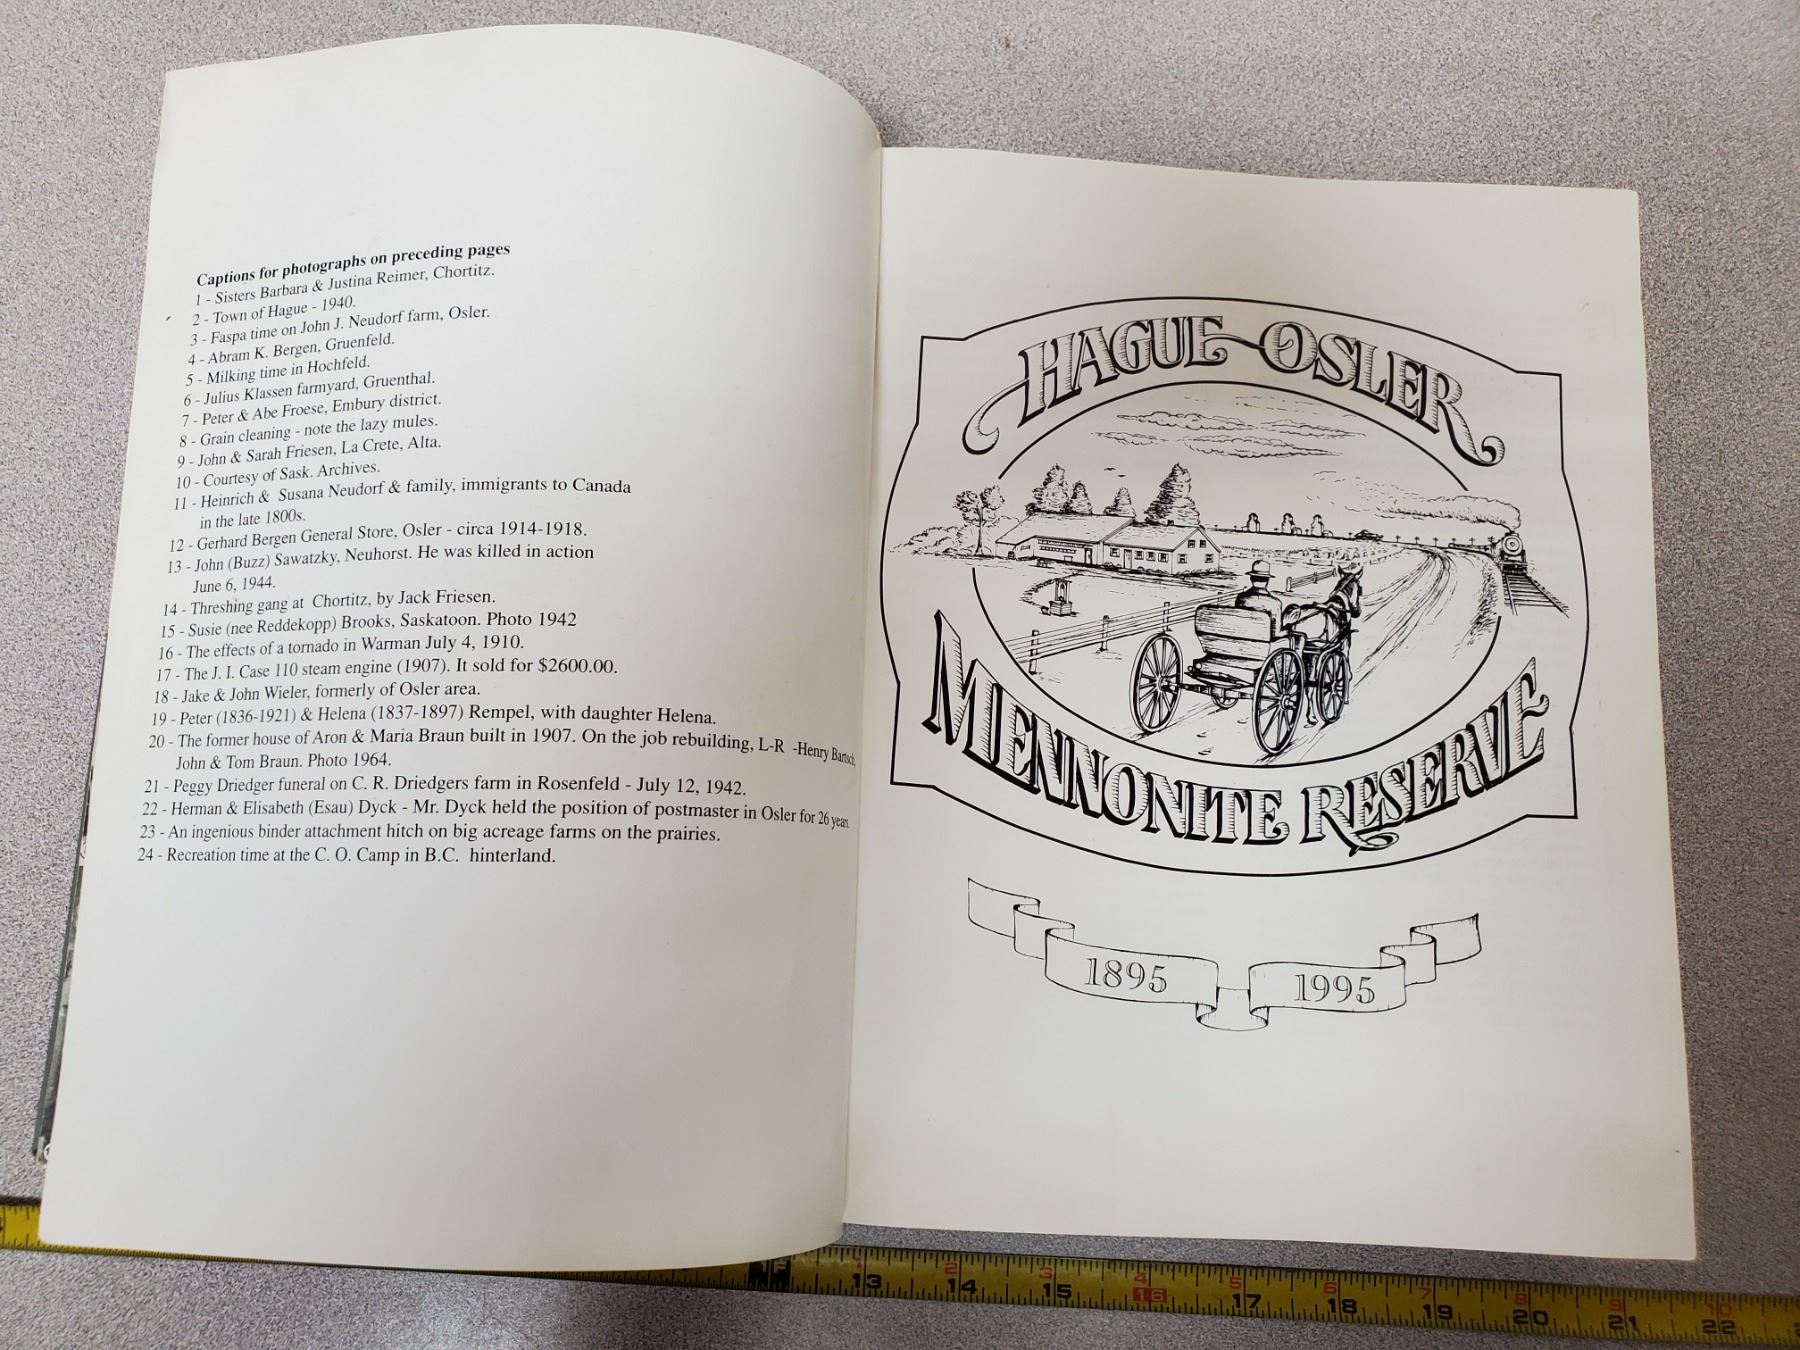 Captions for photographs on preceding pages
1 - Sisters Barbara & Justina Reimer, Chortitz.
2 - Town of Hague - 1940.
3 - Faspa time on John J. Neudorf farm, Osler.
4 - Abram K. Bergen, Gruenfeld.
5 - Milking time in Hochfeld.
6 - Julius Klassen farmyard, Gruenthal.
7 - Peter & Abe Froese, Embury district.
8 - Grain cleaning - note the lazy mules.
9 - John & Sarah Friesen, La Crete, Alta.
10 - Courtesy of Sask. Archives.
11 - Heinrich & Susana Neudorf & family, immigrants to Canada
in the late 1800s.
12 - Gerhard Bergen General Store, Osler - circa 1914-1918.
13 - John (Buzz) Sawatzky, Neuhorst. He was killed in action
June 6, 1944.
14 - Threshing gang at Chortitz, by Jack Friesen.
15 - Susie (nee Reddekopp) Brooks, Saskatoon. Photo 1942
16 - The effects of a tornado in Warman July 4, 1910.
17 - The J. I. Case 110 steam engine (1907). It sold for $2600.00.
18 - Jake & John Wieler, formerly of Osler area.
19 - Peter (1836-1921) & Helena (1837-1897) Rempel, with daughter Helena.
20 - The former house of Aron & Maria Braun built in 1907. On the job rebuilding, L-R -Henry Bartsch,
John & Tom Braun. Photo 1964.
21 - Peggy Driedger funeral on C. R. Driedgers farm in Rosenfeld - July 12, 1942.
22 - Herman & Elisabeth (Esau) Dyck - Mr. Dyck held the position of postmaster in Osler for 26 years.
23 - An ingenious binder attachment hitch on big acreage farms on the prairies.
24 - Recreation time at the C. O. Camp in B.C. hinterland.
HAGUE-OSLER
MENNONITE RESERVE
1895 1995
1 2 3 4 5 6 7 8 9 10
13 14 15 16 17 18 19 20 21 22